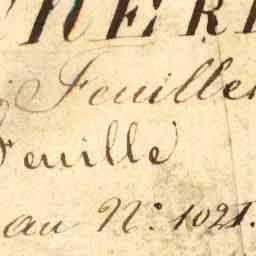 HER
Feuille
Feuille
au N.° 1021.